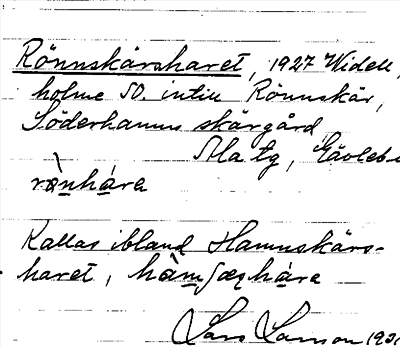 Rönnskärsharet, 1927 Widell,
holme SO. intill Rönnskär,
Söderhamns skärgård
Ala tg, Gävleb.
rǹnhára
Kallas ibland Hamnskärs-
haret, hàmʃæṣhára
Lars Larson